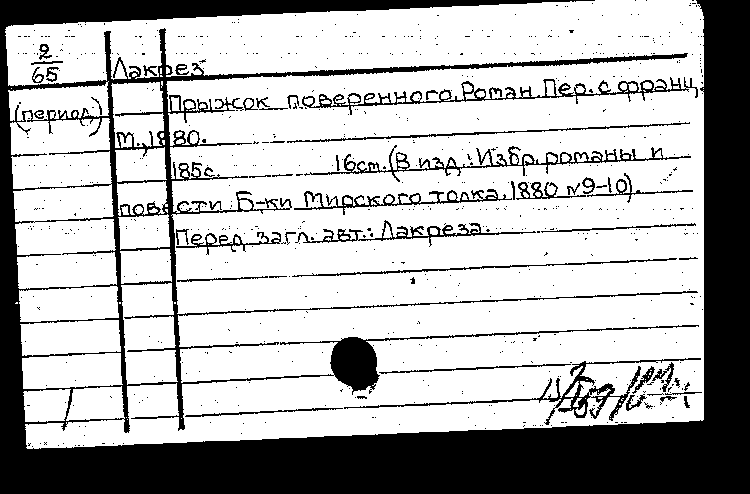 2
65
Лакрез
(период.)
Прыжок поверенного. Роман. Пер. с франц.
М., 1880.
185с. 16см. (В изд.: Избр. романы и
повести. Б-ки Мирского толка. 1880 №9-10).
Перед загл. авт.: Лакреза.